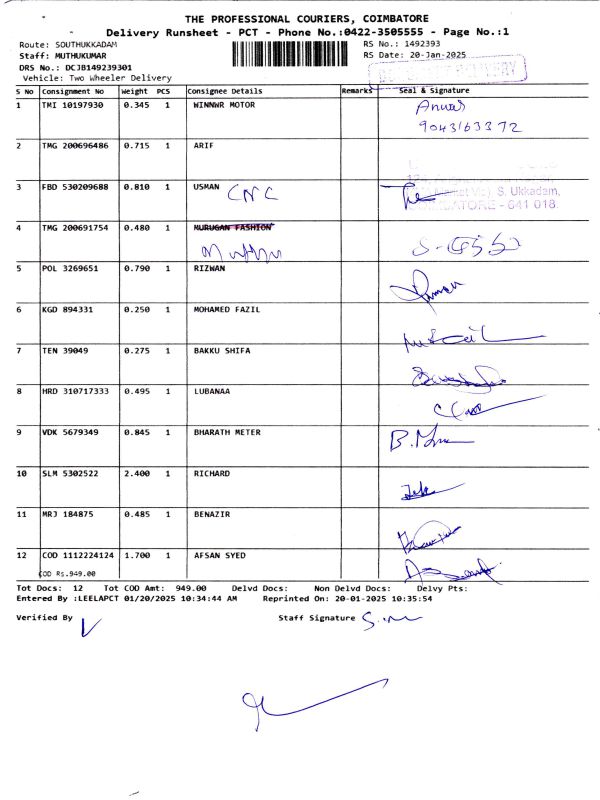 THE PROFESSIONAL COURIERS, COIMBATORE
Delivery Runsheet - PCT - Phone No.:0422-3505555 - Page No.:1
Route: SOUTHUKKADAM RS No.: 1492393
Staff: MUTHUKUMAR RS Date: 20-Jan-2025
DRS No.: DCJB149239301
Vehicle: Two Wheeler Delivery
S No Consignment No Weight PCS Consignee Details Remarks Seal & Signature
1 TMI 10197930 0.345 1 WINNWR MOTOR Anwar
9043163372
2 TMG 200696486 0.715 1 ARIF
3 FBD 530209688 0.810 1 USMAN CNC
S. Ukkadam,
- 641 018.
4 TMG 200691754 0.480 1 MURUGAN FASHION
5 POL 3269651 0.790 1 RIZWAN
6 KGD 894331 0.250 1 MOHAMED FAZIL
7 TEN 39049 0.275 1 BAKKU SHIFA
8 HRD 310717333 0.495 1 LUBANAA
9 VDK 5679349 0.845 1 BHARATH METER
10 SLM 5302522 2.400 1 RICHARD
11 MRJ 184875 0.485 1 BENAZIR
12 COD 1112224124 1.700 1 AFSAN SYED
COD Rs.949.00
Tot Docs: 12 Tot COD Amt: 949.00 Delvd Docs: Non Delvd Docs: Delvy Pts:
Entered By :LEELAPCT 01/20/2025 10:34:44 AM Reprinted On: 20-01-2025 10:35:54
Verified By Staff Signature